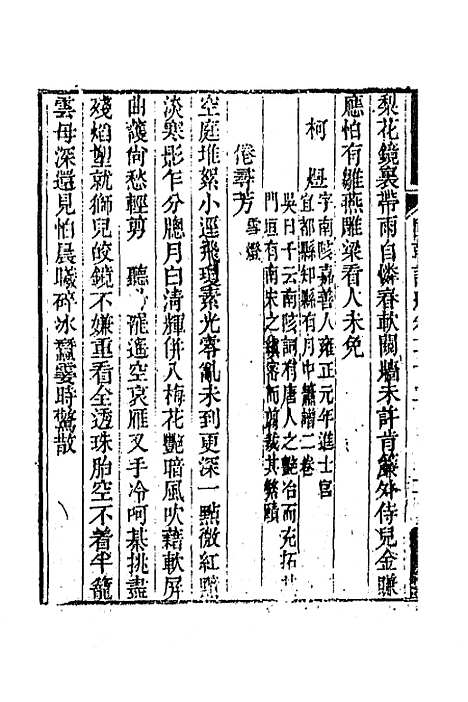 梨花鏡裏帶雨自憐春軟闘墻未許肯簾外侍兒金賺
應怕有雛燕雕梁看人未免
柯煜
字南陔嘉善人雍正元年進士官
宜都縣知縣有月中簫譜二卷
吳日千云南陔詞有唐人之艷冶而充拓其
門垣有南宋之縝密而剪裁其繁賾
倦尋芳
雪燈
空庭堆絮小逕飛瓊素光零亂未到更深一點微紅
淡寒影乍分牕月白清輝併入梅花艷暗風吹藉軟屏
曲護尙愁輕剪　聽　漏遙空哀雁叉手冷呵棊挑盡
殘焰塑就獅兒皎鏡不嫌重看全透珠胎空不着半籠
雲母深還見怕晨曦碎冰蠶霎時驚散